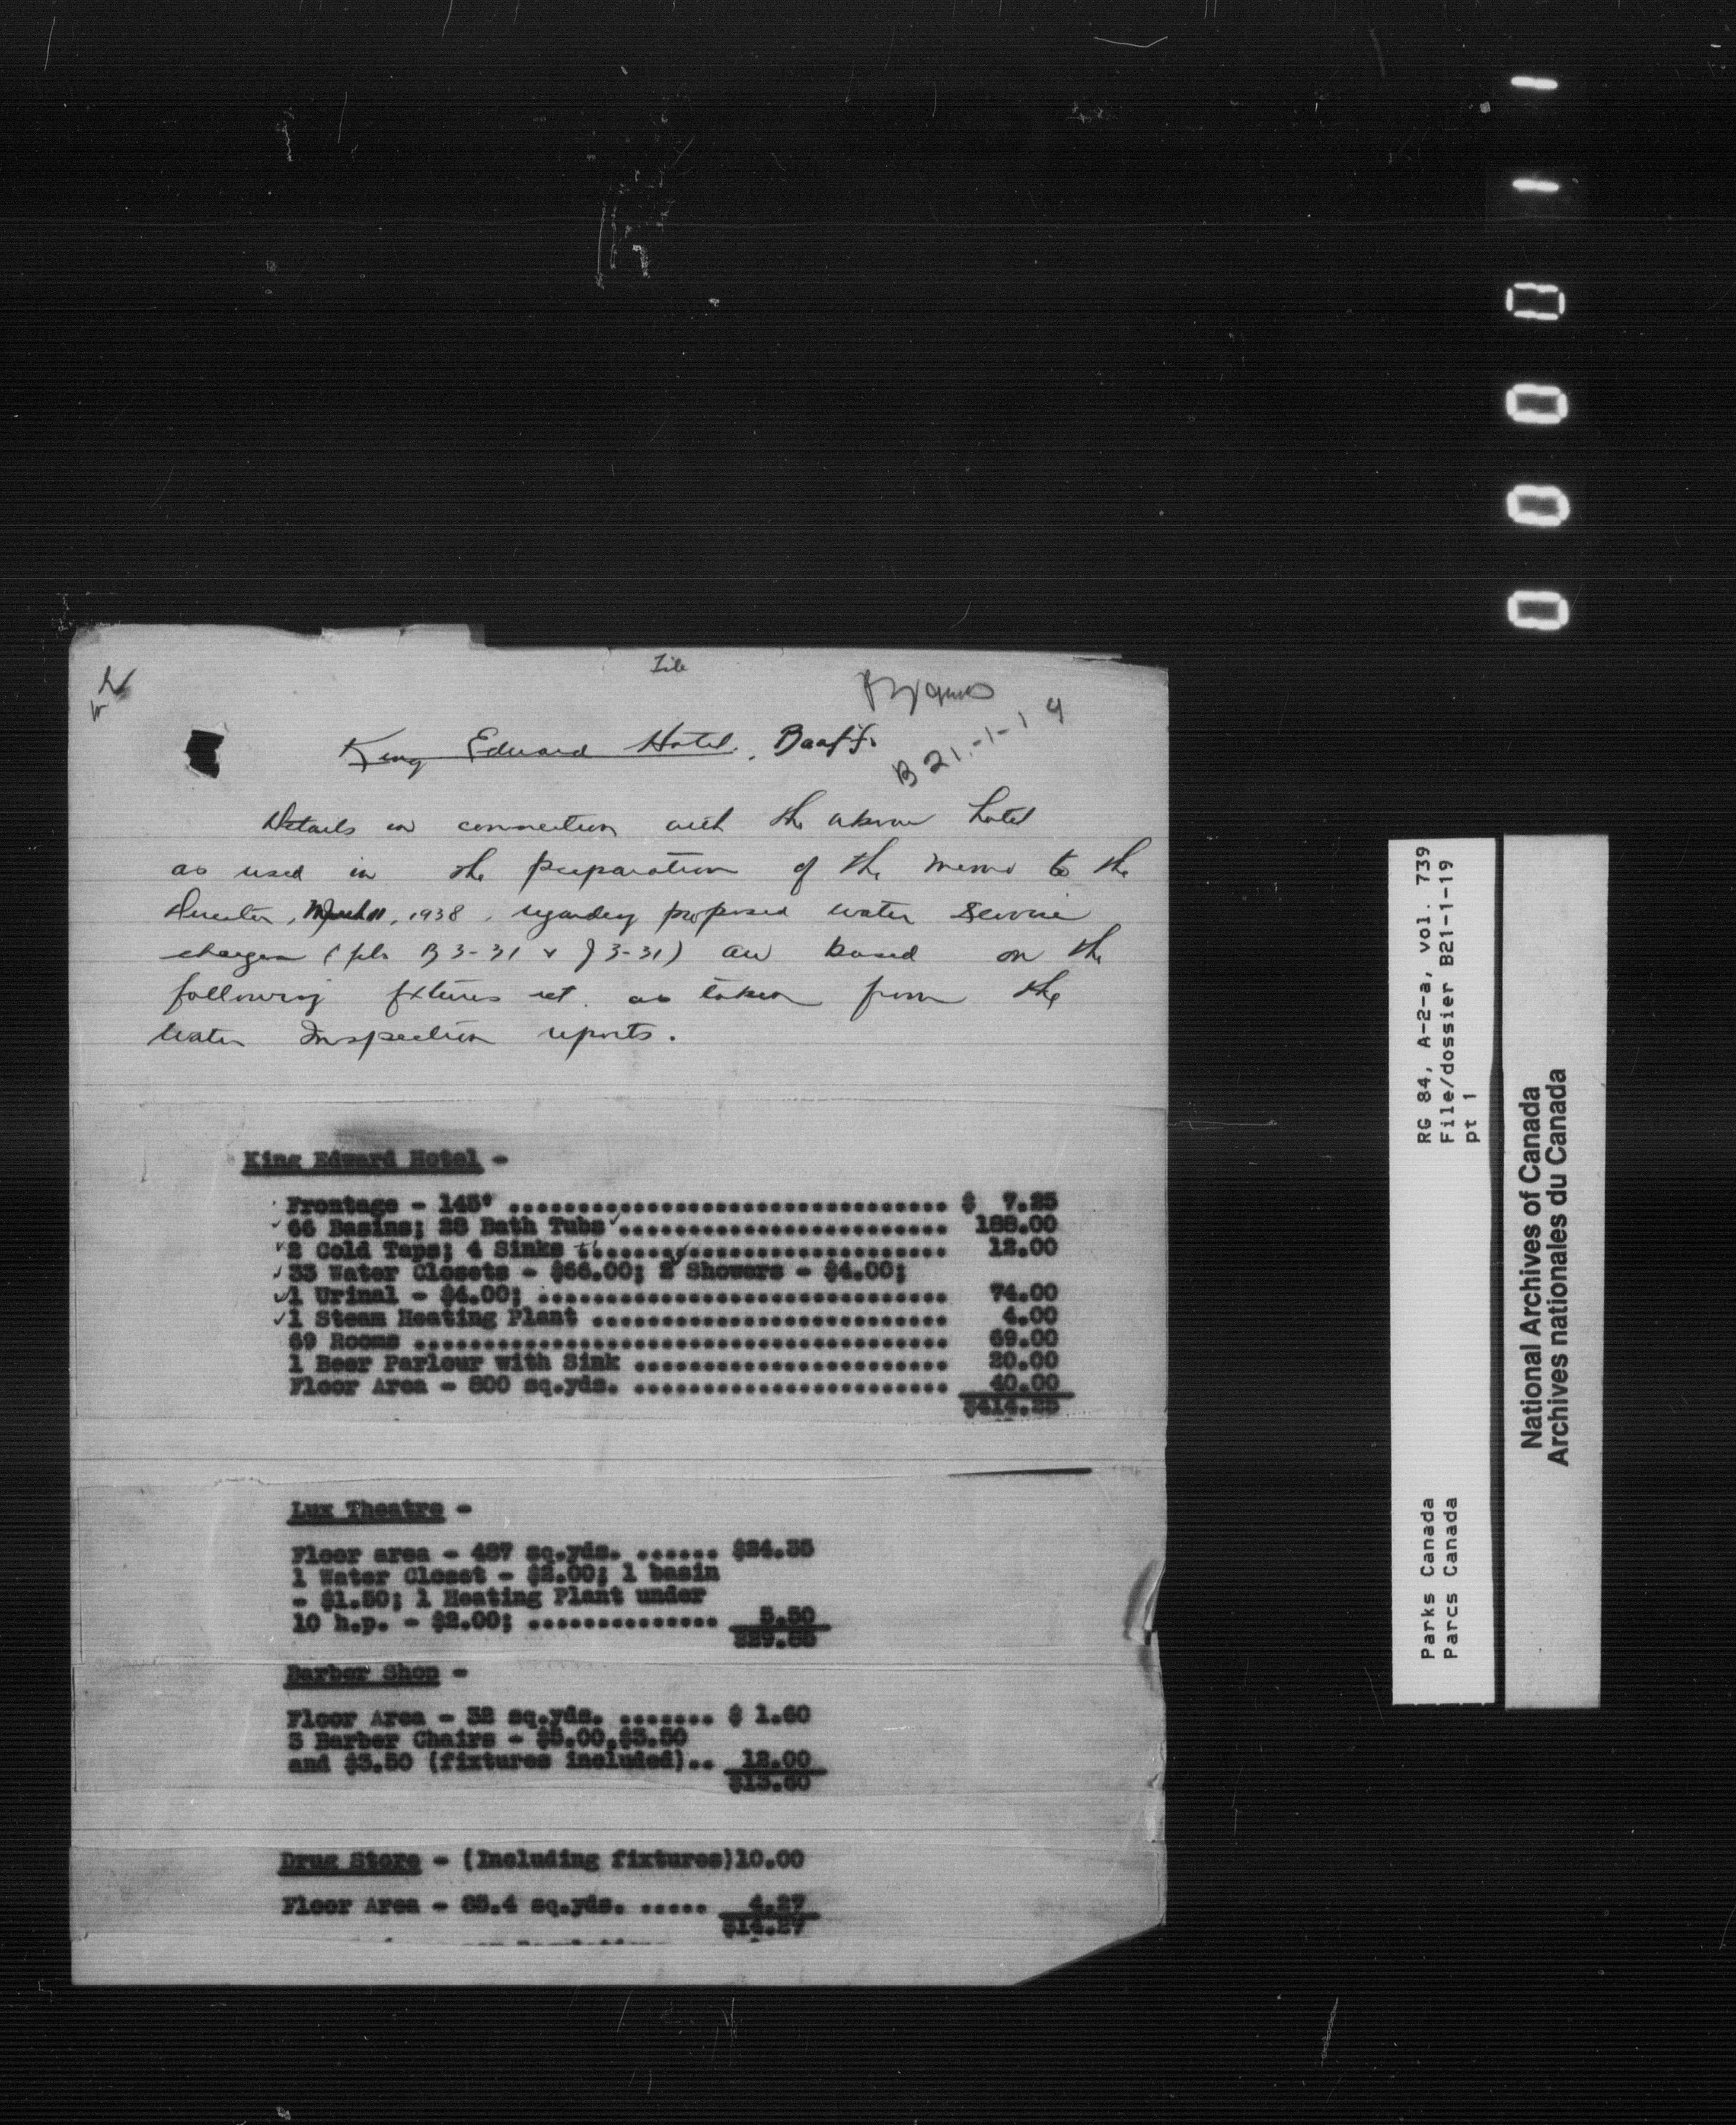 File
B 21.-1-19
King Edward Hotel, Banff.
Details in connection with the above hotel
as used in the preparation of the memo to the
Director, March 11, 1938, regarding proposed water service
charges (fls B 3-31 & J 3-31) are based on the
following fixtures et. as taken from the
Water Inspection reports.
King Edward Hotel -
Frontage - 145' ................................ $ 7.25
66 Basins; 28 Bath Tubs ........................ 188.00
2 Cold Taps; 4 Sinks ........................... 12.00
33 Water Closets - $66.00; 2 Showers - $4.00;
1 Urinal - $4.00; .............................. 74.00
1 Steam Heating Plant .......................... 4.00
69 Rooms ....................................... 69.00
1 Beer Parlour with Sink ....................... 20.00
Floor Area - 800 sq.yds. ....................... 40.00
$414.25
Lux Theatre -
Floor area - 487 sq.yds. ...... $24.35
1 Water Closet - $2.00; 1 basin
- $1.50; 1 Heating Plant under
10 h.p. - $2.00; .............. 5.50
$29.85
Barber Shop -
Floor Area - 32 sq.yds. ....... $ 1.60
3 Barber Chairs - $5.00,$3.50
and $3.50 (fixtures included).. 12.00
$13.60
Drug Store - (Including fixtures)10.00
Floor Area - 85.4 sq.yds. ..... 4.27
$14.27
RG 84, A-2-a, vol. 739
File/dossier B21-1-19
pt 1
Parks Canada
Parcs Canada
National Archives of Canada
Archives nationales du Canada
110000